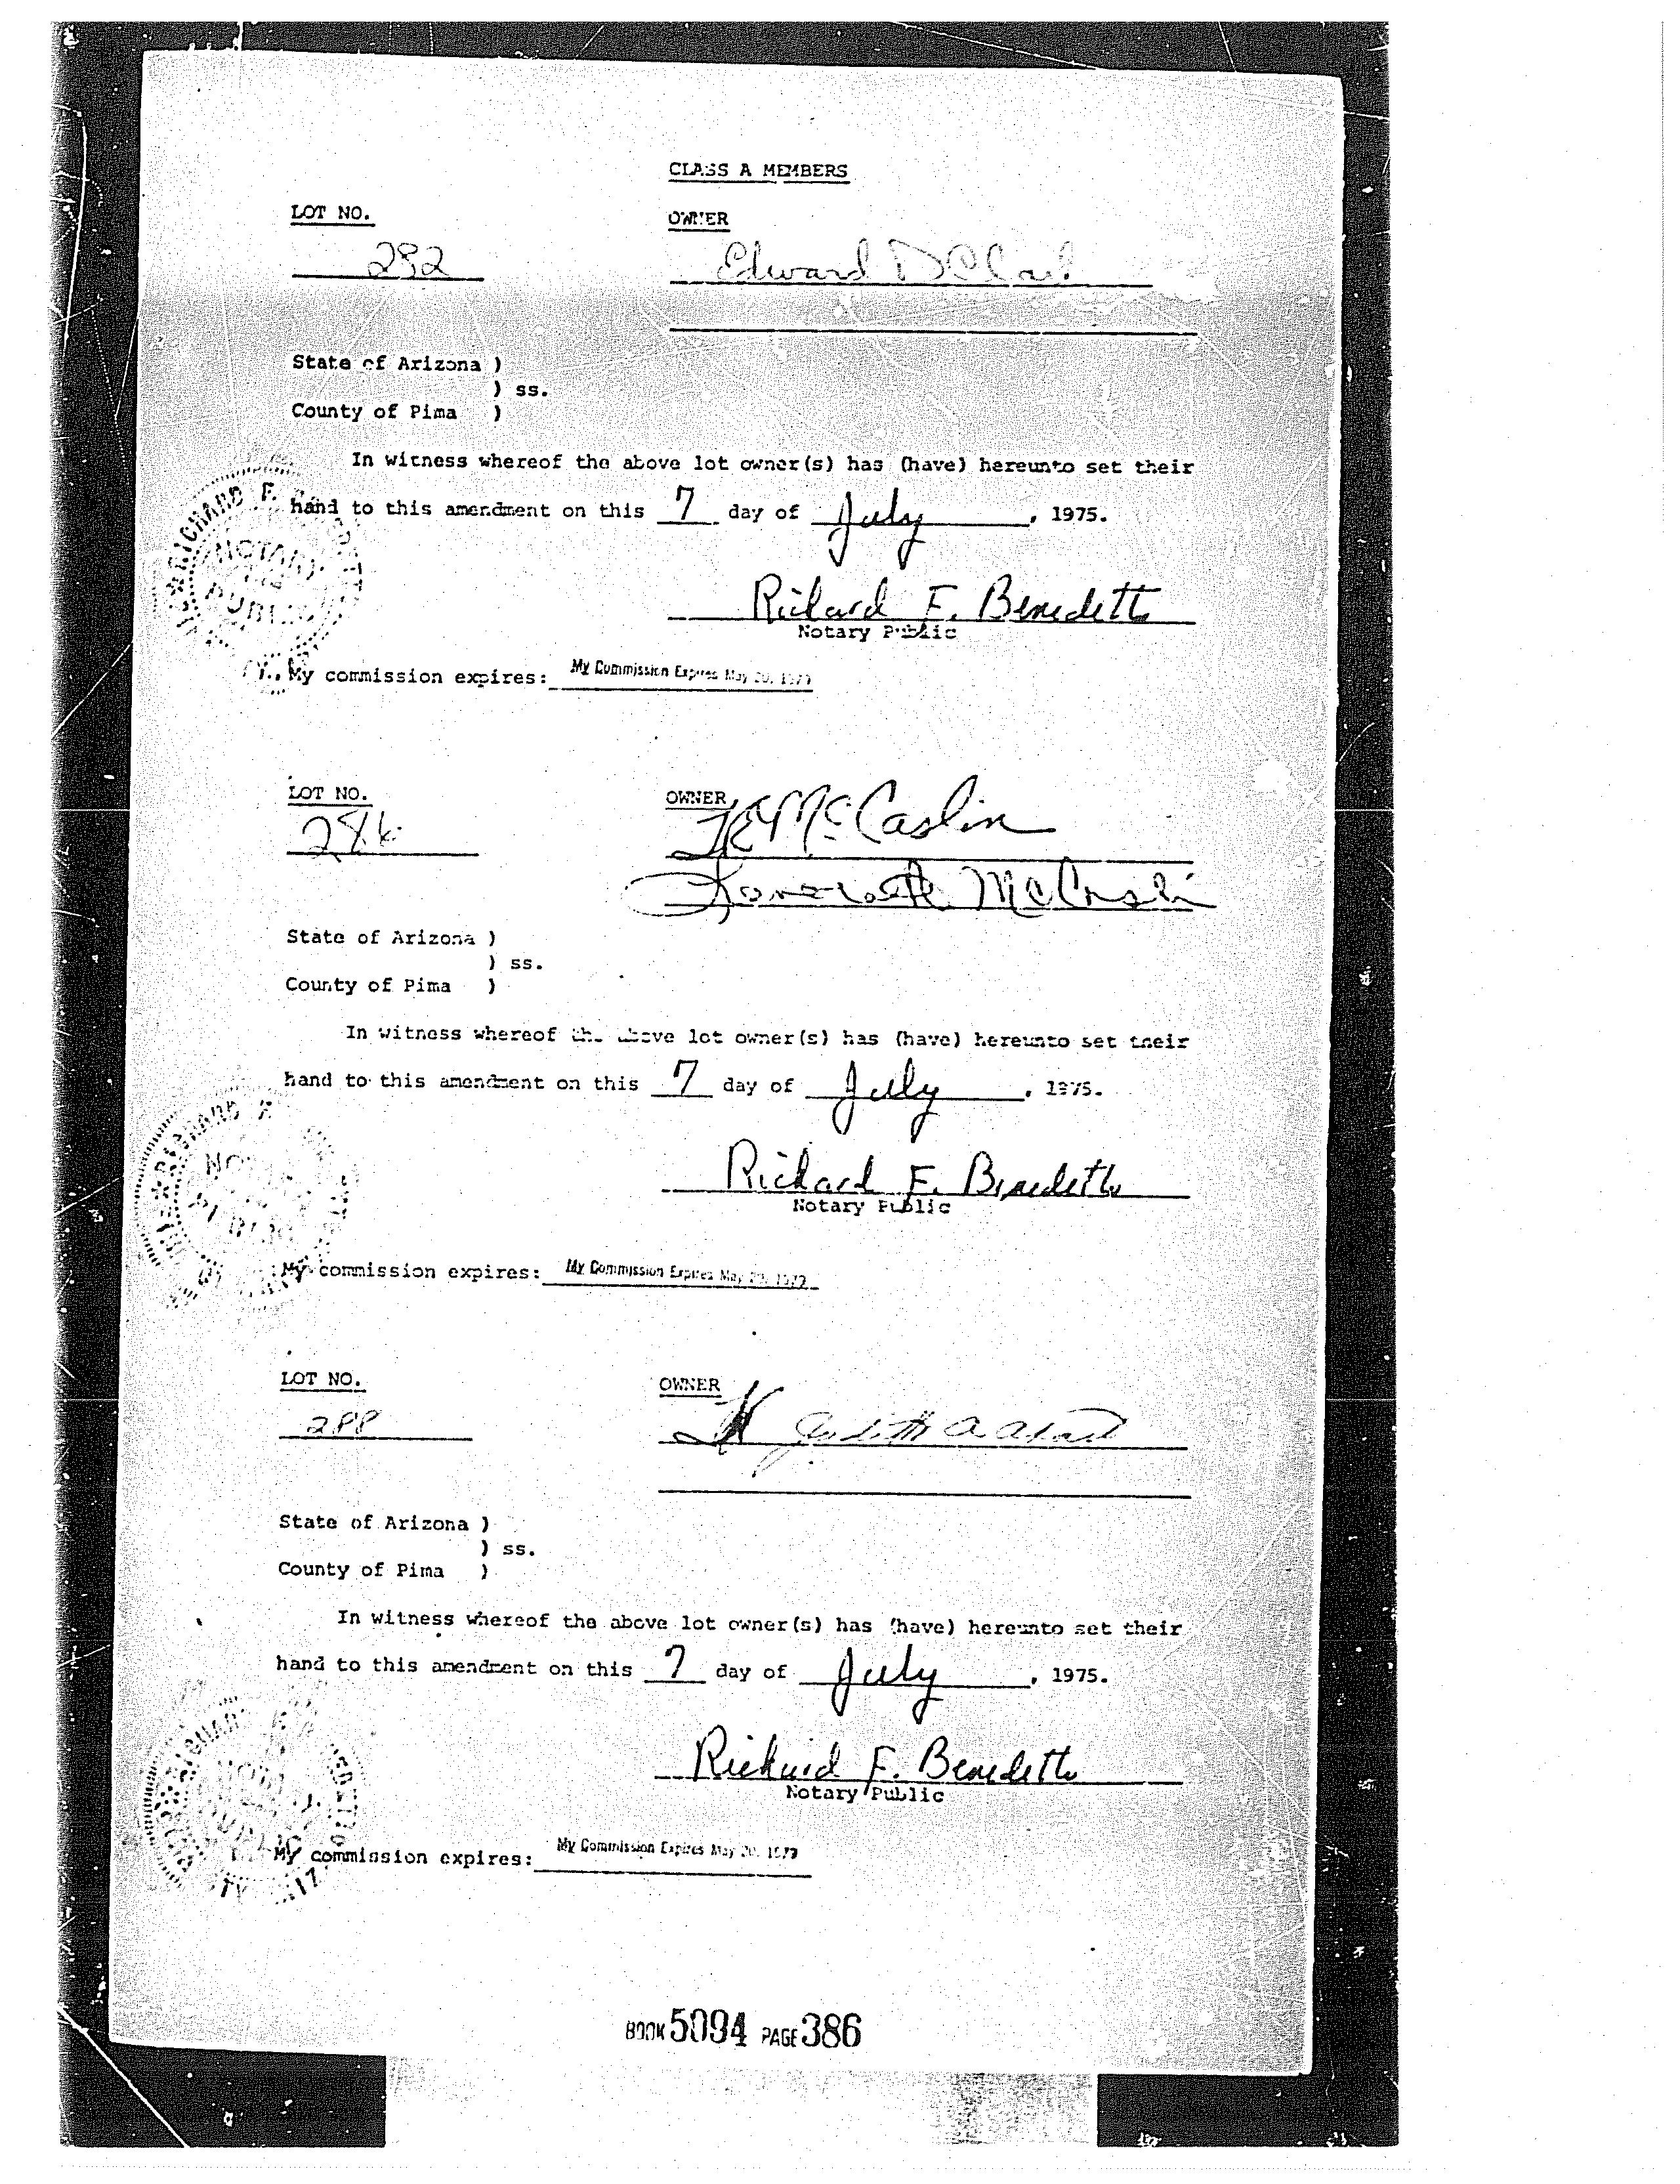 CLASS A MEMBERS
LOT NO. OWNER
282 Edward D Clark
State of Arizona )
) ss.
County of Pima )
In witness whereof the above lot owner(s) has (have) hereunto set their
hand to this amendment on this 7 day of July, 1975.
Richard F. Benedetto
Notary Public
My commission expires: My Commission Expires May 20, 1979
LOT NO. OWNER
McCaslin
McCaslin
State of Arizona )
) ss.
County of Pima )
In witness whereof the above lot owner(s) has (have) hereunto set their
hand to this amendment on this 7 day of July, 1975.
Richard F. Benedetto
Notary Public
My commission expires: My Commission Expires May 20, 1979
LOT NO. OWNER
288 Judith A
State of Arizona )
) ss.
County of Pima )
In witness whereof the above lot owner(s) has (have) hereunto set their
hand to this amendment on this 7 day of July, 1975.
Richard F. Benedetto
Notary Public
My commission expires: My Commission Expires May 20, 1979
BOOK 5094 PAGE 386